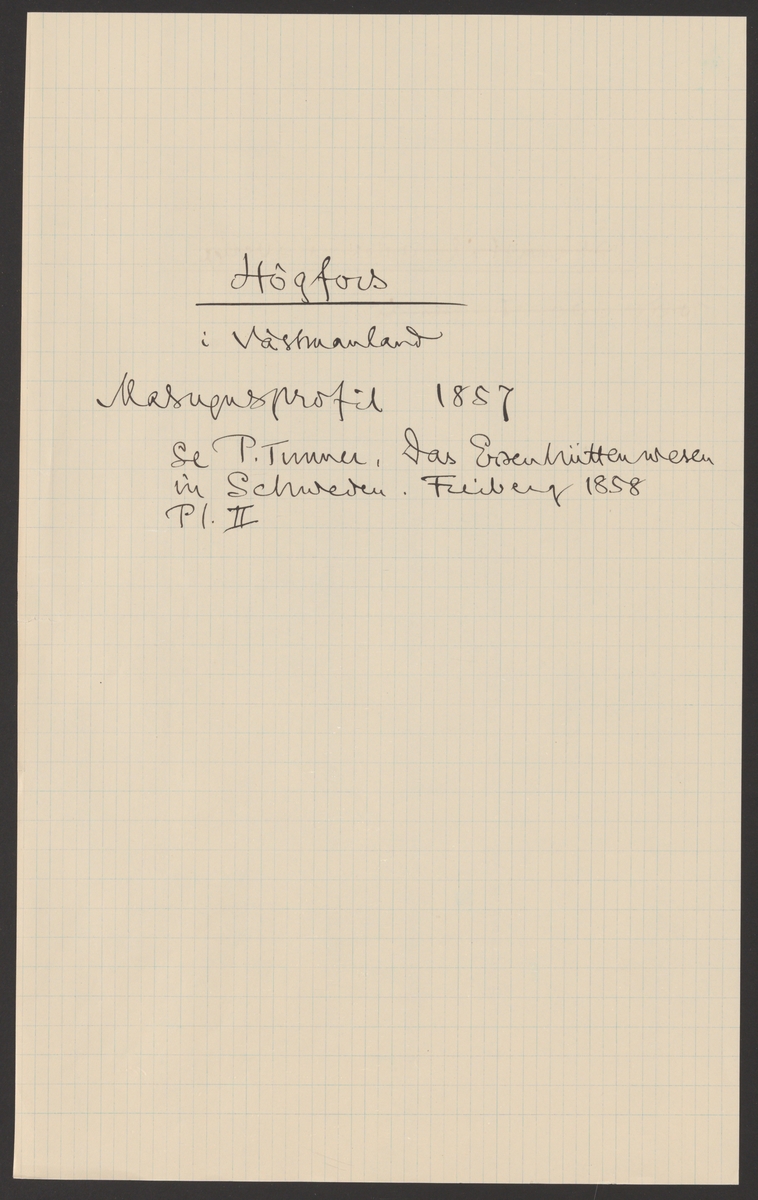 Högfors
i Västmanland
Masugnsprofil 1857
Se P. Tunner, Das Eisenhüttenwesen
in Schweden. Freiberg 1858
Pl. II